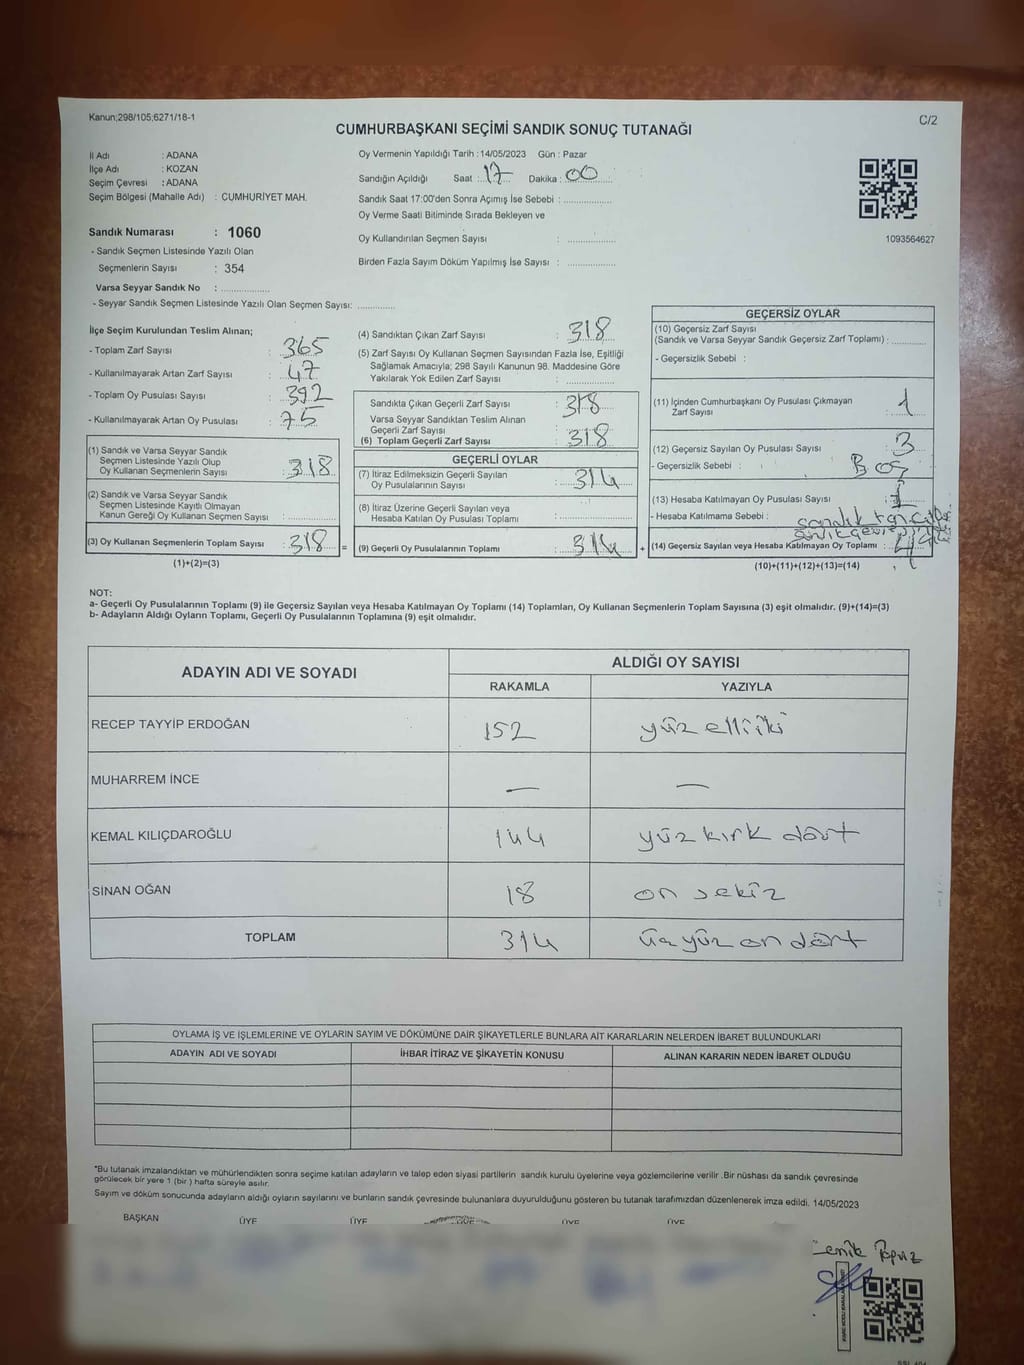 Kanun;298/105;6271/18-1
C/2
CUMHURBAŞKANI SEÇİMİ SANDIK SONUÇ TUTANAĞI
İl Adı : ADANA
İlçe Adı : KOZAN
Seçim Çevresi : ADANA
Seçim Bölgesi (Mahalle Adı) : CUMHURİYET MAH.
Sandık Numarası : 1060
- Sandık Seçmen Listesinde Yazılı Olan
Seçmenlerin Sayısı : 354
Varsa Seyyar Sandık No : ....................
- Seyyar Sandık Seçmen Listesinde Yazılı Olan Seçmen Sayısı: ...............
Oy Vermenin Yapıldığı Tarih : 14/05/2023 Gün : Pazar
Sandığın Açıldığı Saat : 17 Dakika : 00
Sandık Saat 17:00'den Sonra Açımış İse Sebebi : ....................
Oy Verme Saati Bitiminde Sırada Bekleyen ve
Oy Kullandırılan Seçmen Sayısı : ....................
Birden Fazla Sayım Döküm Yapılmış İse Sayısı : ....................
1093564627
İlçe Seçim Kurulundan Teslim Alınan;
- Toplam Zarf Sayısı : 365
- Kullanılmayarak Artan Zarf Sayısı : 47
- Toplam Oy Pusulası Sayısı : 392
- Kullanılmayarak Artan Oy Pusulası : 75
(1) Sandık ve Varsa Seyyar Sandık
Seçmen Listesinde Yazılı Olup
Oy Kullanan Seçmenlerin Sayısı : 318
(2) Sandık ve Varsa Seyyar Sandık
Seçmen Listesinde Kayıtlı Olmayan
Kanun Gereği Oy Kullanan Seçmen Sayısı : ....................
(3) Oy Kullanan Seçmenlerin Toplam Sayısı : 318 =
(1)+(2)=(3)
(4) Sandıktan Çıkan Zarf Sayısı : 318
(5) Zarf Sayısı Oy Kullanan Seçmen Sayısından Fazla İse, Eşitliği
Sağlamak Amacıyla; 298 Sayılı Kanunun 98. Maddesine Göre
Yakılarak Yok Edilen Zarf Sayısı : ....................
Sandıkta Çıkan Geçerli Zarf Sayısı : 318
Varsa Seyyar Sandıktan Teslim Alınan
Geçerli Zarf Sayısı
(6) Toplam Geçerli Zarf Sayısı : 318
GEÇERLİ OYLAR
(7) İtiraz Edilmeksizin Geçerli Sayılan
Oy Pusulalarının Sayısı : 314
(8) İtiraz Üzerine Geçerli Sayılan veya
Hesaba Katılan Oy Pusulası Toplamı : ....................
(9) Geçerli Oy Pusulalarının Toplamı : 314 +
GEÇERSİZ OYLAR
(10) Geçersiz Zarf Sayısı
(Sandık ve Varsa Seyyar Sandık Geçersiz Zarf Toplamı) : ............
- Geçersizlik Sebebi :
(11) İçinden Cumhurbaşkanı Oy Pusulası Çıkmayan
Zarf Sayısı : 1
(12) Geçersiz Sayılan Oy Pusulası Sayısı : 3
- Geçersizlik Sebebi : Boş
(13) Hesaba Katılmayan Oy Pusulası Sayısı :
- Hesaba Katılmama Sebebi : sandık
(14) Geçersiz Sayılan veya Hesaba Katılmayan Oy Toplamı : 4
(10)+(11)+(12)+(13)=(14)
NOT:
a- Geçerli Oy Pusulalarının Toplamı (9) ile Geçersiz Sayılan veya Hesaba Katılmayan Oy Toplamı (14) Toplamları, Oy Kullanan Seçmenlerin Toplam Sayısına (3) eşit olmalıdır. (9)+(14)=(3)
b- Adayların Aldığı Oyların Toplamı, Geçerli Oy Pusulalarının Toplamına (9) eşit olmalıdır.
ADAYIN ADI VE SOYADI
ALDIĞI OY SAYISI
RAKAMLA YAZIYLA
RECEP TAYYİP ERDOĞAN 152 yüz elli iki
MUHARREM İNCE — —
KEMAL KILIÇDAROĞLU 144 yüz kırk dört
SİNAN OĞAN 18 on sekiz
TOPLAM 314 üç yüz on dört
OYLAMA İŞ VE İŞLEMLERİNE VE OYLARIN SAYIM VE DÖKÜMÜNE DAİR ŞİKAYETLERLE BUNLARA AİT KARARLARIN NELERDEN İBARET BULUNDUKLARI
ADAYIN ADI VE SOYADI İHBAR İTİRAZ VE ŞİKAYETİN KONUSU ALINAN KARARIN NEDEN İBARET OLDUĞU
*Bu tutanak imzalandıktan ve mühürlendikten sonra seçime katılan adayların ve talep eden siyasi partilerin sandık kurulu üyelerine veya gözlemcilerine verilir .Bir nüshası da sandık çevresinde
görülecek bir yere 1 (bir ) hafta süreyle asılır.
Sayım ve döküm sonucunda adayların aldığı oyların sayılarını ve bunların sandık çevresinde bulunanlara duyurulduğunu gösteren bu tutanak tarafımızdan düzenlenerek imza edildi. 14/05/2023
BAŞKAN ÜYE ÜYE ÜYE ÜYE